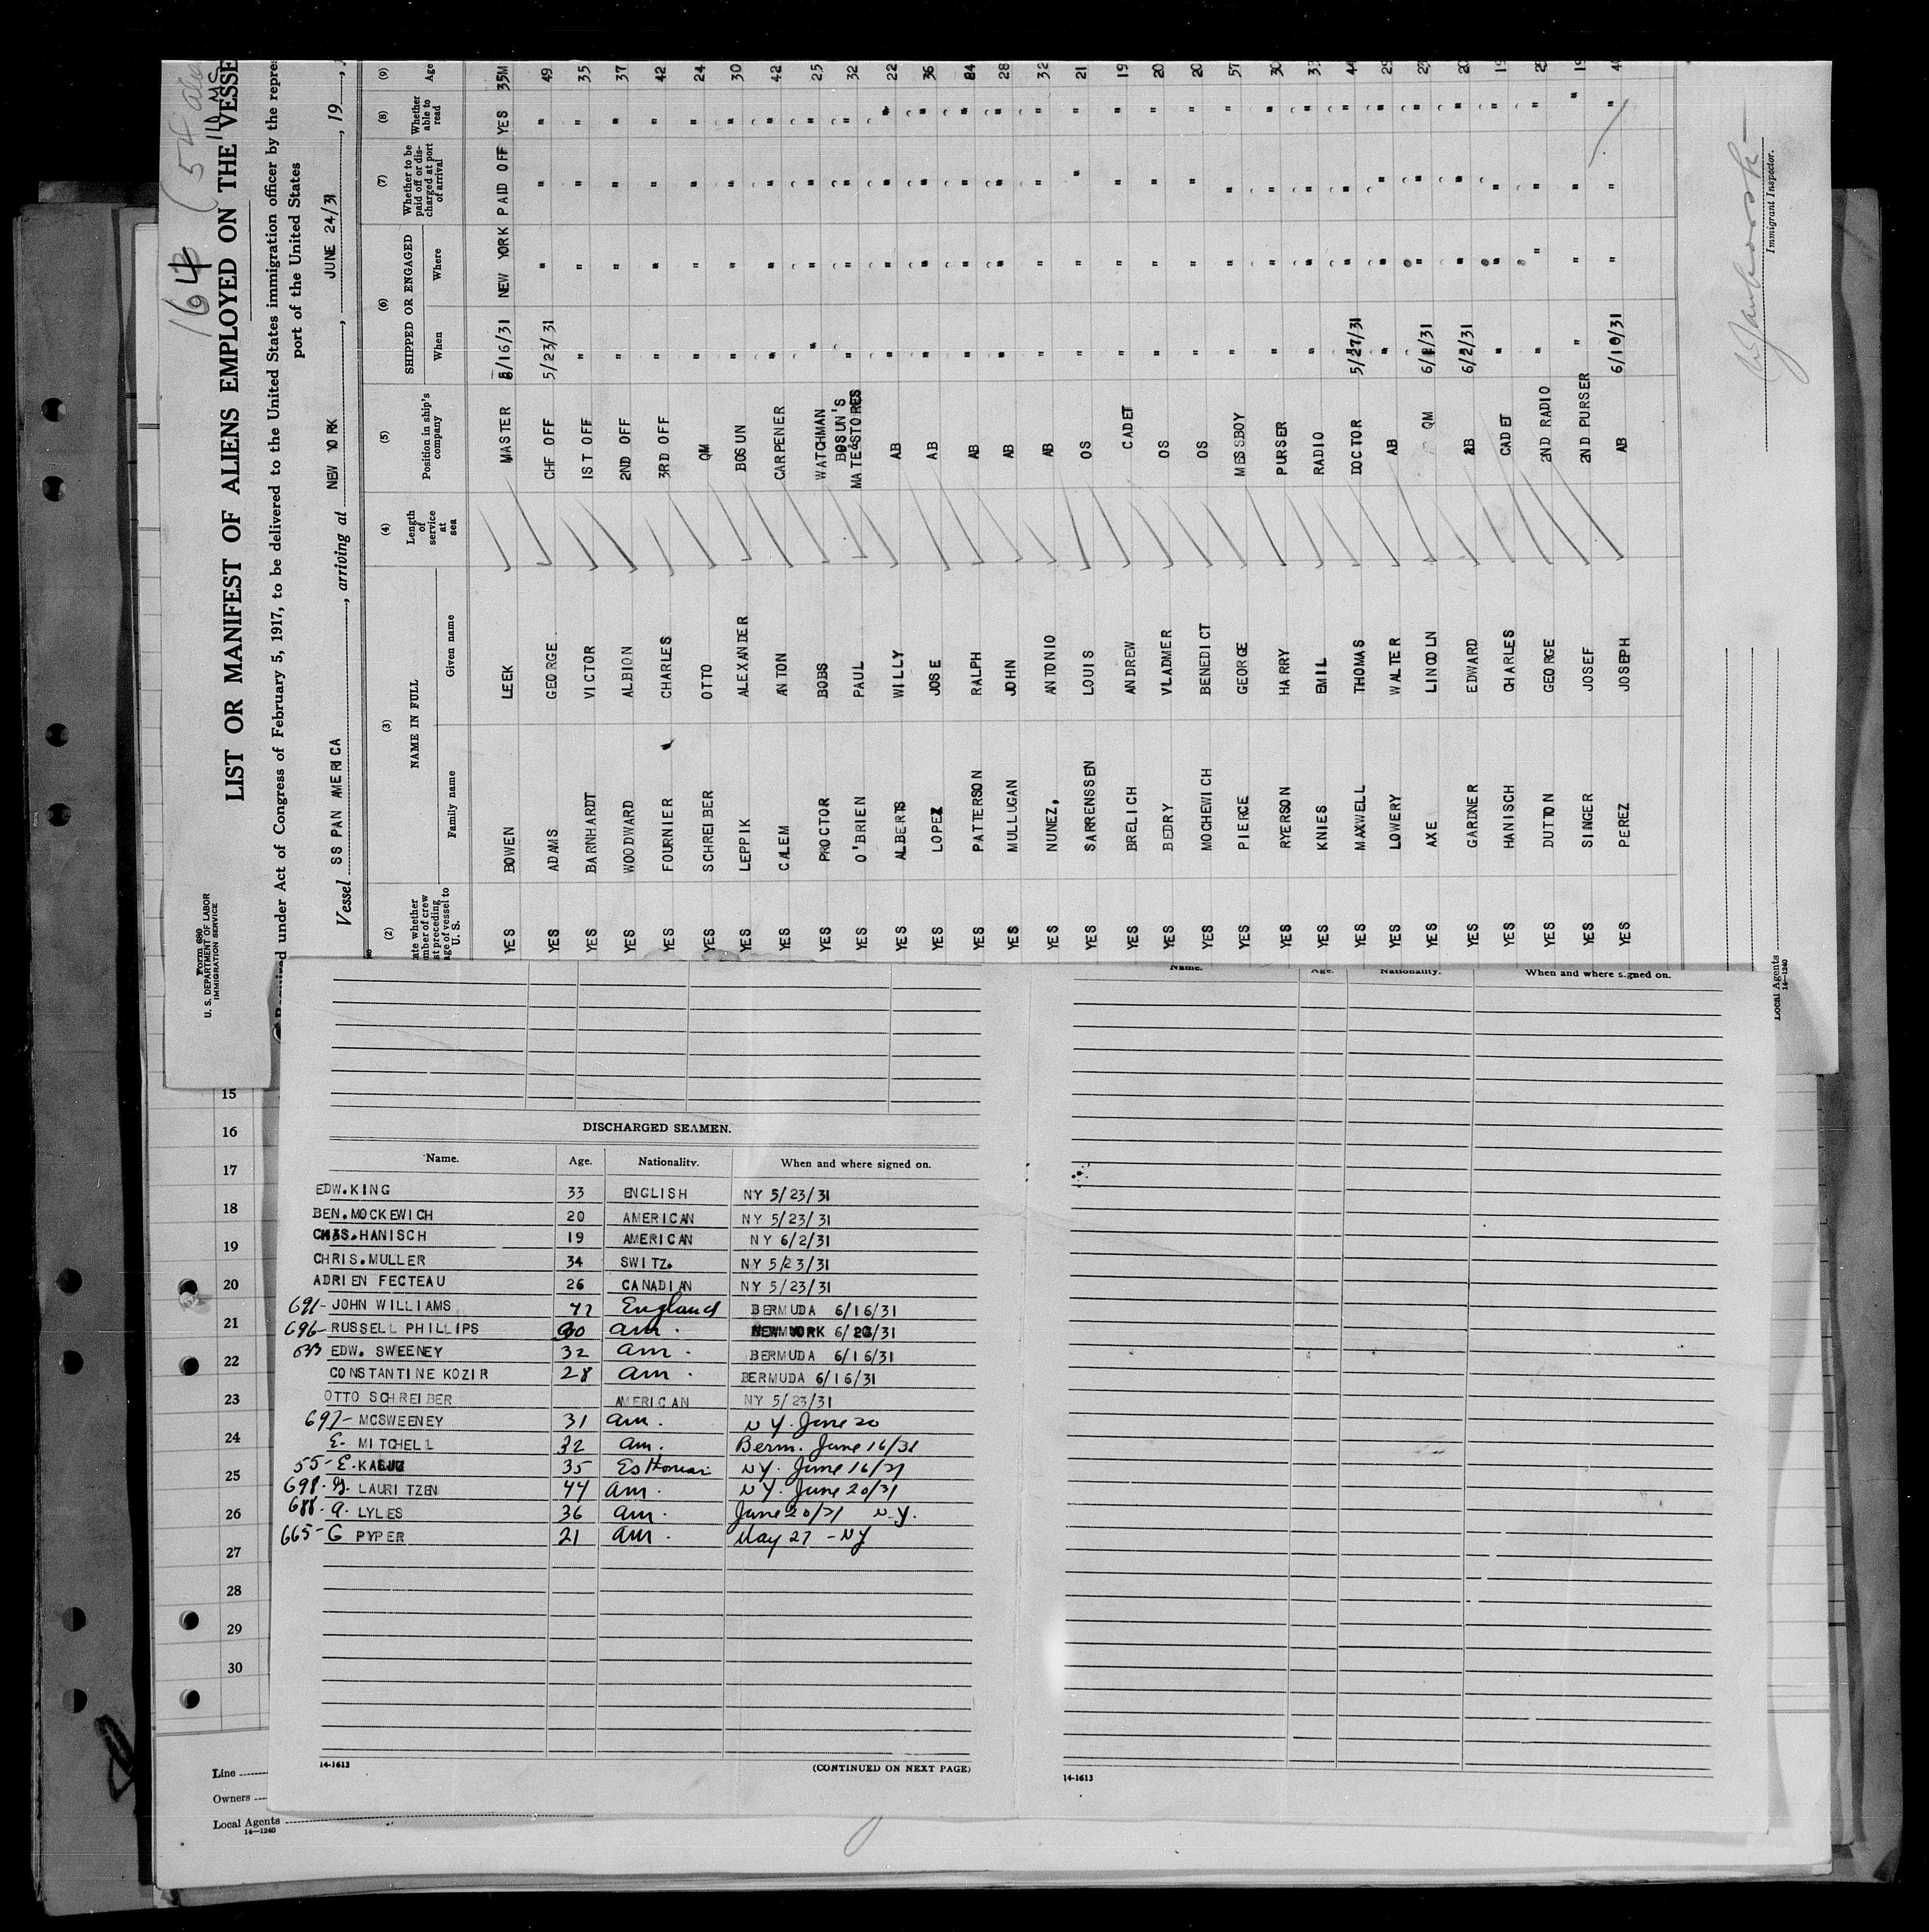 164
Form 680
U. S. DEPARTMENT OF LABOR
IMMIGRATION SERVICE
LIST OR MANIFEST OF ALIENS EMPLOYED ON THE VESSE
under Act of Congress of February 5, 1917, to be delivered to the United States immigration officer by the repre
port of the United States
Vessel SS PAN AMERICA, arriving at NEW YORK, JUNE 24/31, 19
(2) (3) (4) (5) (6) (7) (8) (9)
NAME IN FULL
SHIPPED OR ENGAGED
Family name Given name Length of service at sea Position in ship's company When Where Whether to be paid off or discharged at port of arrival Whether able to read Age
YES BOWEN LEEK MASTER 5/16/31 NEW YORK PAID OFF YES 35M
YES ADAMS GEORGE CHF OFF 5/23/31 " " " 49
YES BARNHARDT VICTOR 1ST OFF " " " " 35
YES WOODWARD ALBION 2ND OFF " " " " 37
YES FOURNIER CHARLES 3RD OFF " " " " 42
YES SCHREIBER OTTO QM " " " " 24
YES LEPPIK ALEXANDER BOSUN " " " " 30
YES CALEM ANTON CARPENER " " " " 42
YES PROCTOR BOBS WATCHMAN " " " " 25
YES O'BRIEN PAUL BOSUN'S MATE&STORES " " " " 32
YES ALBERTS WILLY AB " " " " 22
YES LOPEZ JOSE AB " " " " 36
YES PATTERSON RALPH AB " " " " 24
YES MULLUGAN JOHN AB " " " " 28
YES NUNEZ, ANTONIO AB " " " " 32
YES SARRENSSEN LOUIS OS " " " " 21
YES BRELICH ANDREW CADET " " " " 19
YES BEDRY VLADMER OS " " " " 20
YES MOCHEWICH BENEDICT OS " " " " 20
YES PIERCE GEORGE MESSBOY " " " " 57
YES RYERSON HARRY PURSER " " " " 30
YES KNIES EMIL RADIO " " " "
YES MAXWELL THOMAS DOCTOR 5/27/31 " " " 44
YES LOWERY WALTER AB " " " "
YES AXE LINCOLN QM " " "
YES GARDNER EDWARD AB 6/2/31 " " " 20
YES HANISCH CHARLES CADET " " " "
YES DUTTON GEORGE 2ND RADIO " " " "
YES SINGER JOSEF 2ND PURSER " " " "
YES PEREZ JOSEPH AB 6/10/31 " " "
Immigrant Inspector.
Local Agents
14—1240
Name. Age. Nationality. When and where signed on.
DISCHARGED SEAMEN.
Name. Age. Nationality. When and where signed on.
EDW.KING 33 ENGLISH NY 5/23/31
BEN.MOCKEWICH 20 AMERICAN NY 5/23/31
CHAS.HANISCH 19 AMERICAN NY 6/2/31
CHRIS.MULLER 34 SWITZ. NY 5/23/31
ADRIEN FECTEAU 26 CANADIAN NY 5/23/31
691- JOHN WILLIAMS 42 England BERMUDA 6/16/31
696- RUSSELL PHILLIPS am. NEW YORK 6/20/31
EDW. SWEENEY 32 am. BERMUDA 6/16/31
CONSTANTINE KOZIR 28 am. BERMUDA 6/16/31
OTTO SCHREIBER AMERICAN NY 5/23/31
697- MCSWEENEY 31 am. NY. June 20
E. MITCHELL 32 am. Berm. June 16/31
55- E. 35 Esthonian NY. June 16/31
698- LAURITZEN 44 am. NY. June 20/31
688- A. LYLES 36 am. June 20/31 N.Y.
665- G PYPER 21 am. May 27 - NY
14-1613
(CONTINUED ON NEXT PAGE)
14-1613
15
16
17
18
19
20
21
22
23
24
25
26
27
28
29
30
Line
Owners
Local Agents
14—1240